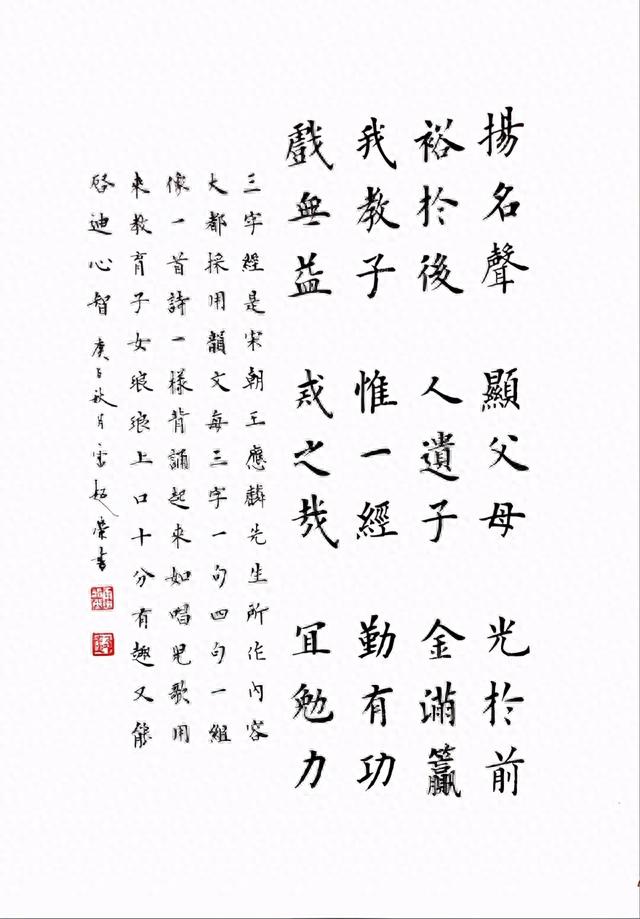 揚名聲 顯父母 光於前
裕於後 人遺子 金滿籯
我教子 惟一經 勤有功
戲無益 戒之哉 宜勉力
三字經是宋朝王應麟先生所作內容
大都採用韻文每三字一句四句一組
像一首詩一樣背誦起來如唱兒歌用
來教育子女琅琅上口十分有趣又能
啓迪心智 庚子秋月雷超榮書